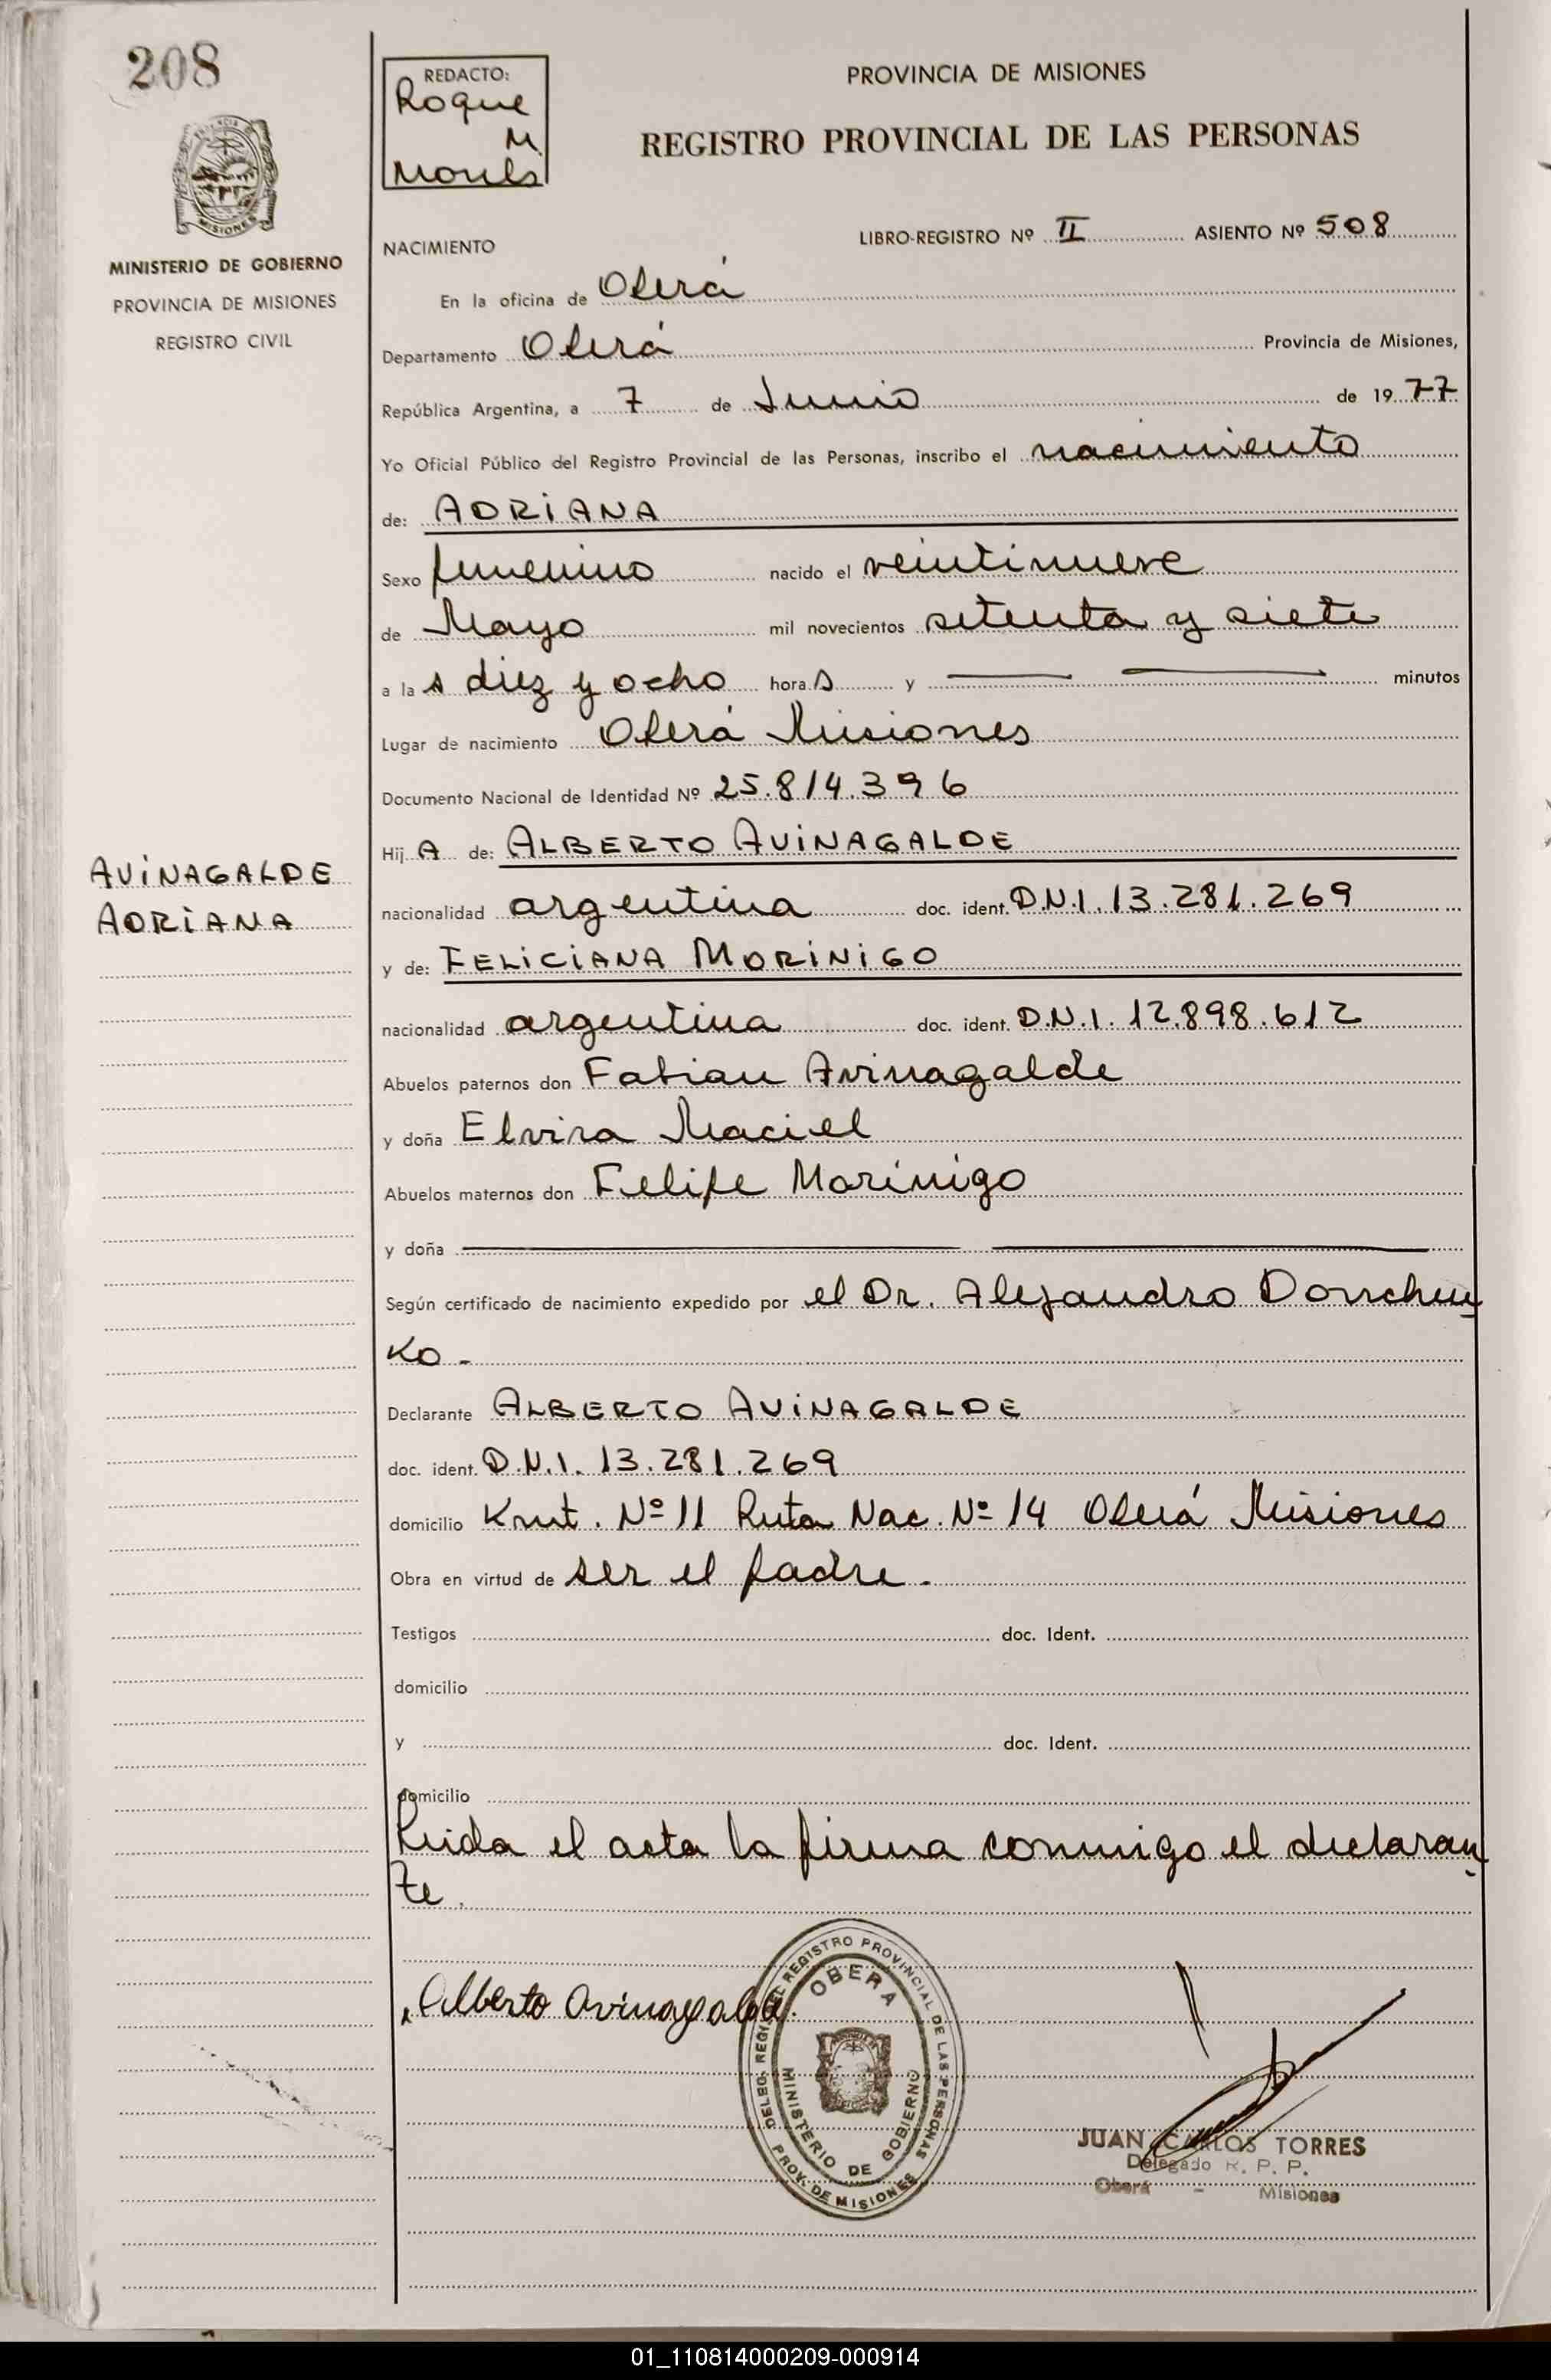 208
REDACTO:
Roque
M.
PROVINCIA DE MISIONES
REGISTRO PROVINCIAL DE LAS PERSONAS
MISIONES
MINISTERIO DE GOBIERNO
PROVINCIA DE MISIONES
REGISTRO CIVIL
LIBRO-REGISTRO Nº II ASIENTO Nº 508
NACIMIENTO
En la oficina de Oberá
Departamento Oberá Provincia de Misiones,
República Argentina, a 7 de Junio de 1977
Yo Oficial Público del Registro Provincial de las Personas, inscribo el nacimiento
de: ADRIANA
Sexo femenino nacido el veintinueve
de Mayo mil novecientos setenta y siete
a las diez y ocho horas y minutos
Lugar de nacimiento Oberá Misiones
Documento Nacional de Identidad Nº 25.814.396
Hij A de: ALBERTO AVINAGALDE
AVINAGALDE
ADRIANA
nacionalidad argentina doc. ident. D.N.I. 13.281.269
y de: FELICIANA MORINIGO
nacionalidad argentina doc. ident. D.N.I. 12.898.612
Abuelos paternos don Fabian Avinagalde
y doña Elvira Maciel
Abuelos maternos don Felipe Morinigo
y doña
Según certificado de nacimiento expedido por el Dr. Alejandro Dorrchen
ko -
Declarante ALBERTO AVINAGALDE
doc. ident. D.N.I. 13.281.269
domicilio Kmt. Nº 11 Ruta Nac. Nº 14 Oberá Misiones
Obra en virtud de ser el padre.
Testigos doc. Ident.
domicilio
y doc. Ident.
domicilio
Leida el acta la firma conmigo el declaran
te.
Alberto Avinagalde.
DELEG. REG. DEL REGISTRO PROVINCIAL DE LAS PERSONAS
OBERA
MINISTERIO DE GOBIERNO
PROV. DE MISIONES
JUAN CARLOS TORRES
Delegado R. P. P.
Oberá - Misiones
01_110814000209-000914